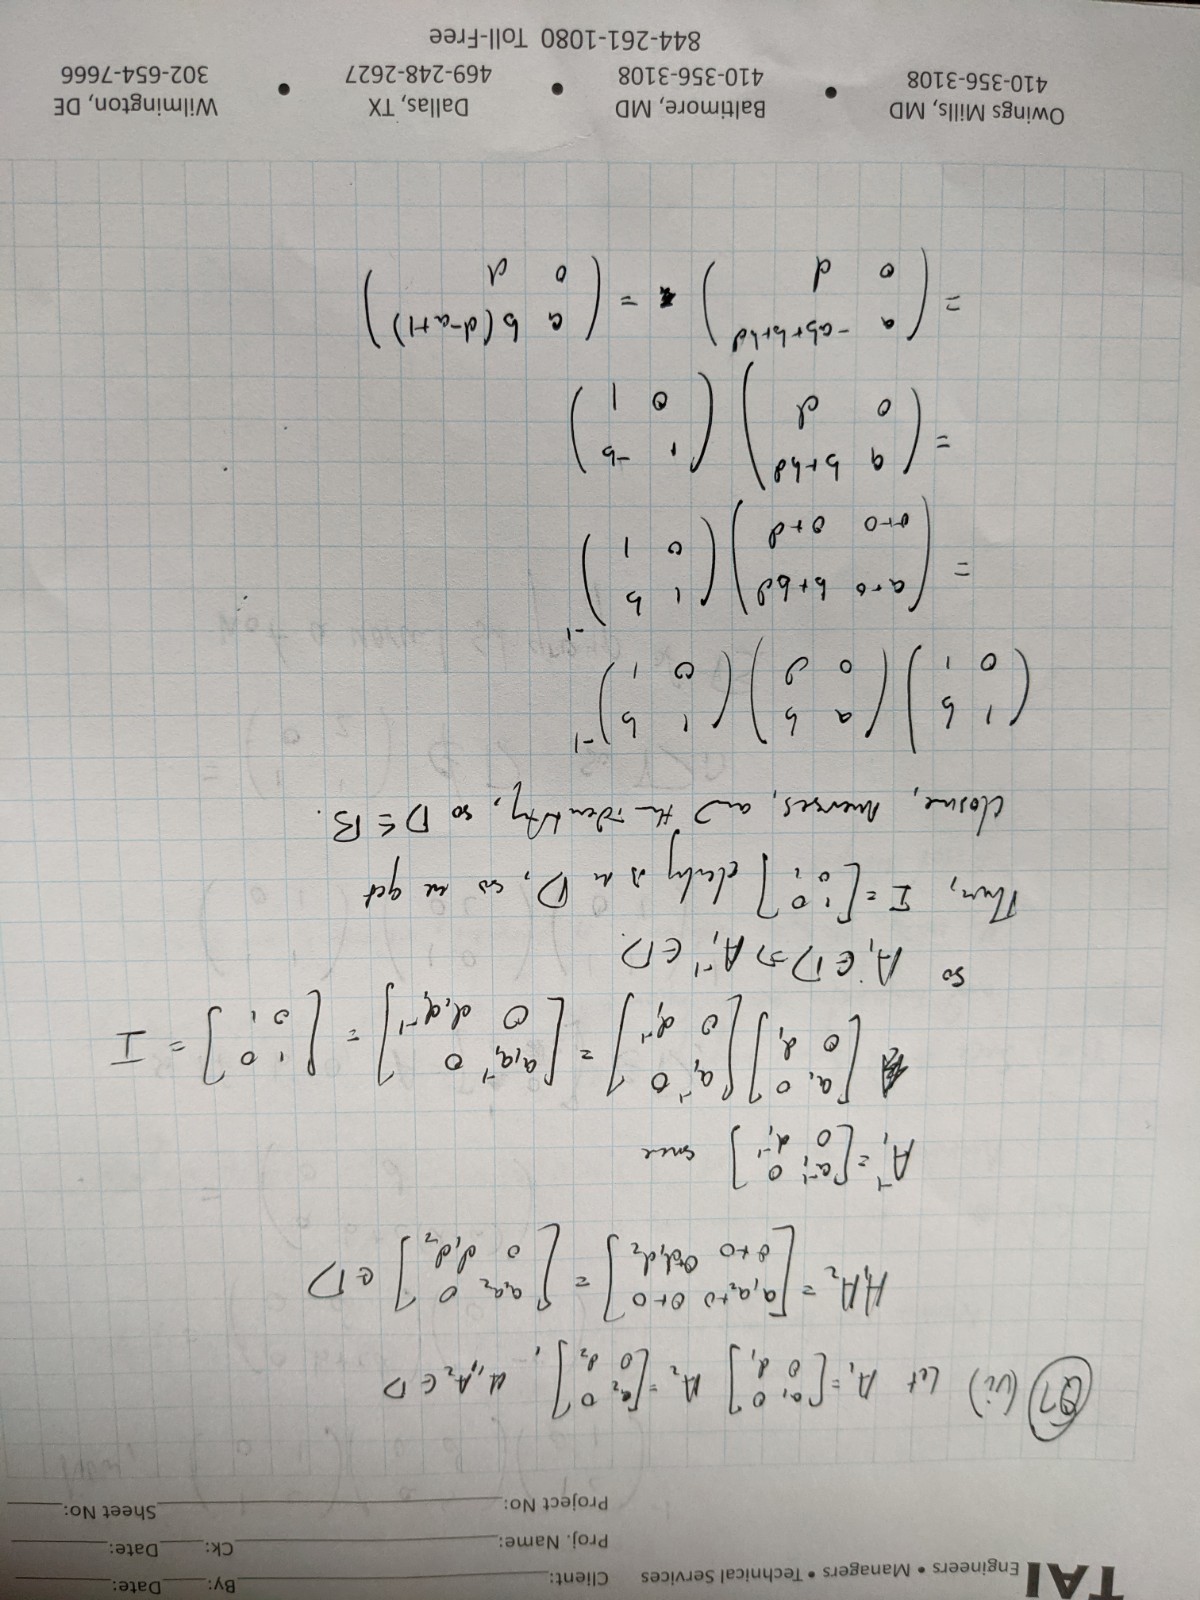 TAI Engineers • Managers • Technical Services
Client: By: Date:
Proj. Name: Ck: Date:
Project No: Sheet No:
Q7 (vi) Let A₁ = [a₁ 0; 0 d₁] A₂ = [a₂ 0; 0 d₂], A₁, A₂ ∈ D
A₁A₂ = [a₁a₂+0 0+0; 0+0 0+d₁d₂] = [a₁a₂ 0; 0 d₁d₂] ∈ D
A₁⁻¹ = [a₁⁻¹ 0; 0 d₁⁻¹] since
[a₁ 0; 0 d₁] [a₁⁻¹ 0; 0 d₁⁻¹] = [a₁a₁⁻¹ 0; 0 d₁d₁⁻¹] = [1 0; 0 1] = I
so A₁ ∈ D ⇒ A₁⁻¹ ∈ D.
Then, I = [1 0; 0 1] clearly is in D, so we get
closure, inverses, and the identity, so D ≤ B.
(1 b; 0 1) (a b; 0 d) (1 b; 0 1)⁻¹
= (a+0 b+bd; 0+0 0+d) (1 b; 0 1)⁻¹
= (a b+bd; 0 d) (1 -b; 0 1)
= (a -ab+b+bd; 0 d) = (a b(d-a+1); 0 d)
Owings Mills, MD • Baltimore, MD • Dallas, TX • Wilmington, DE
410-356-3108 410-356-3108 469-248-2627 302-654-7666
844-261-1080 Toll-Free